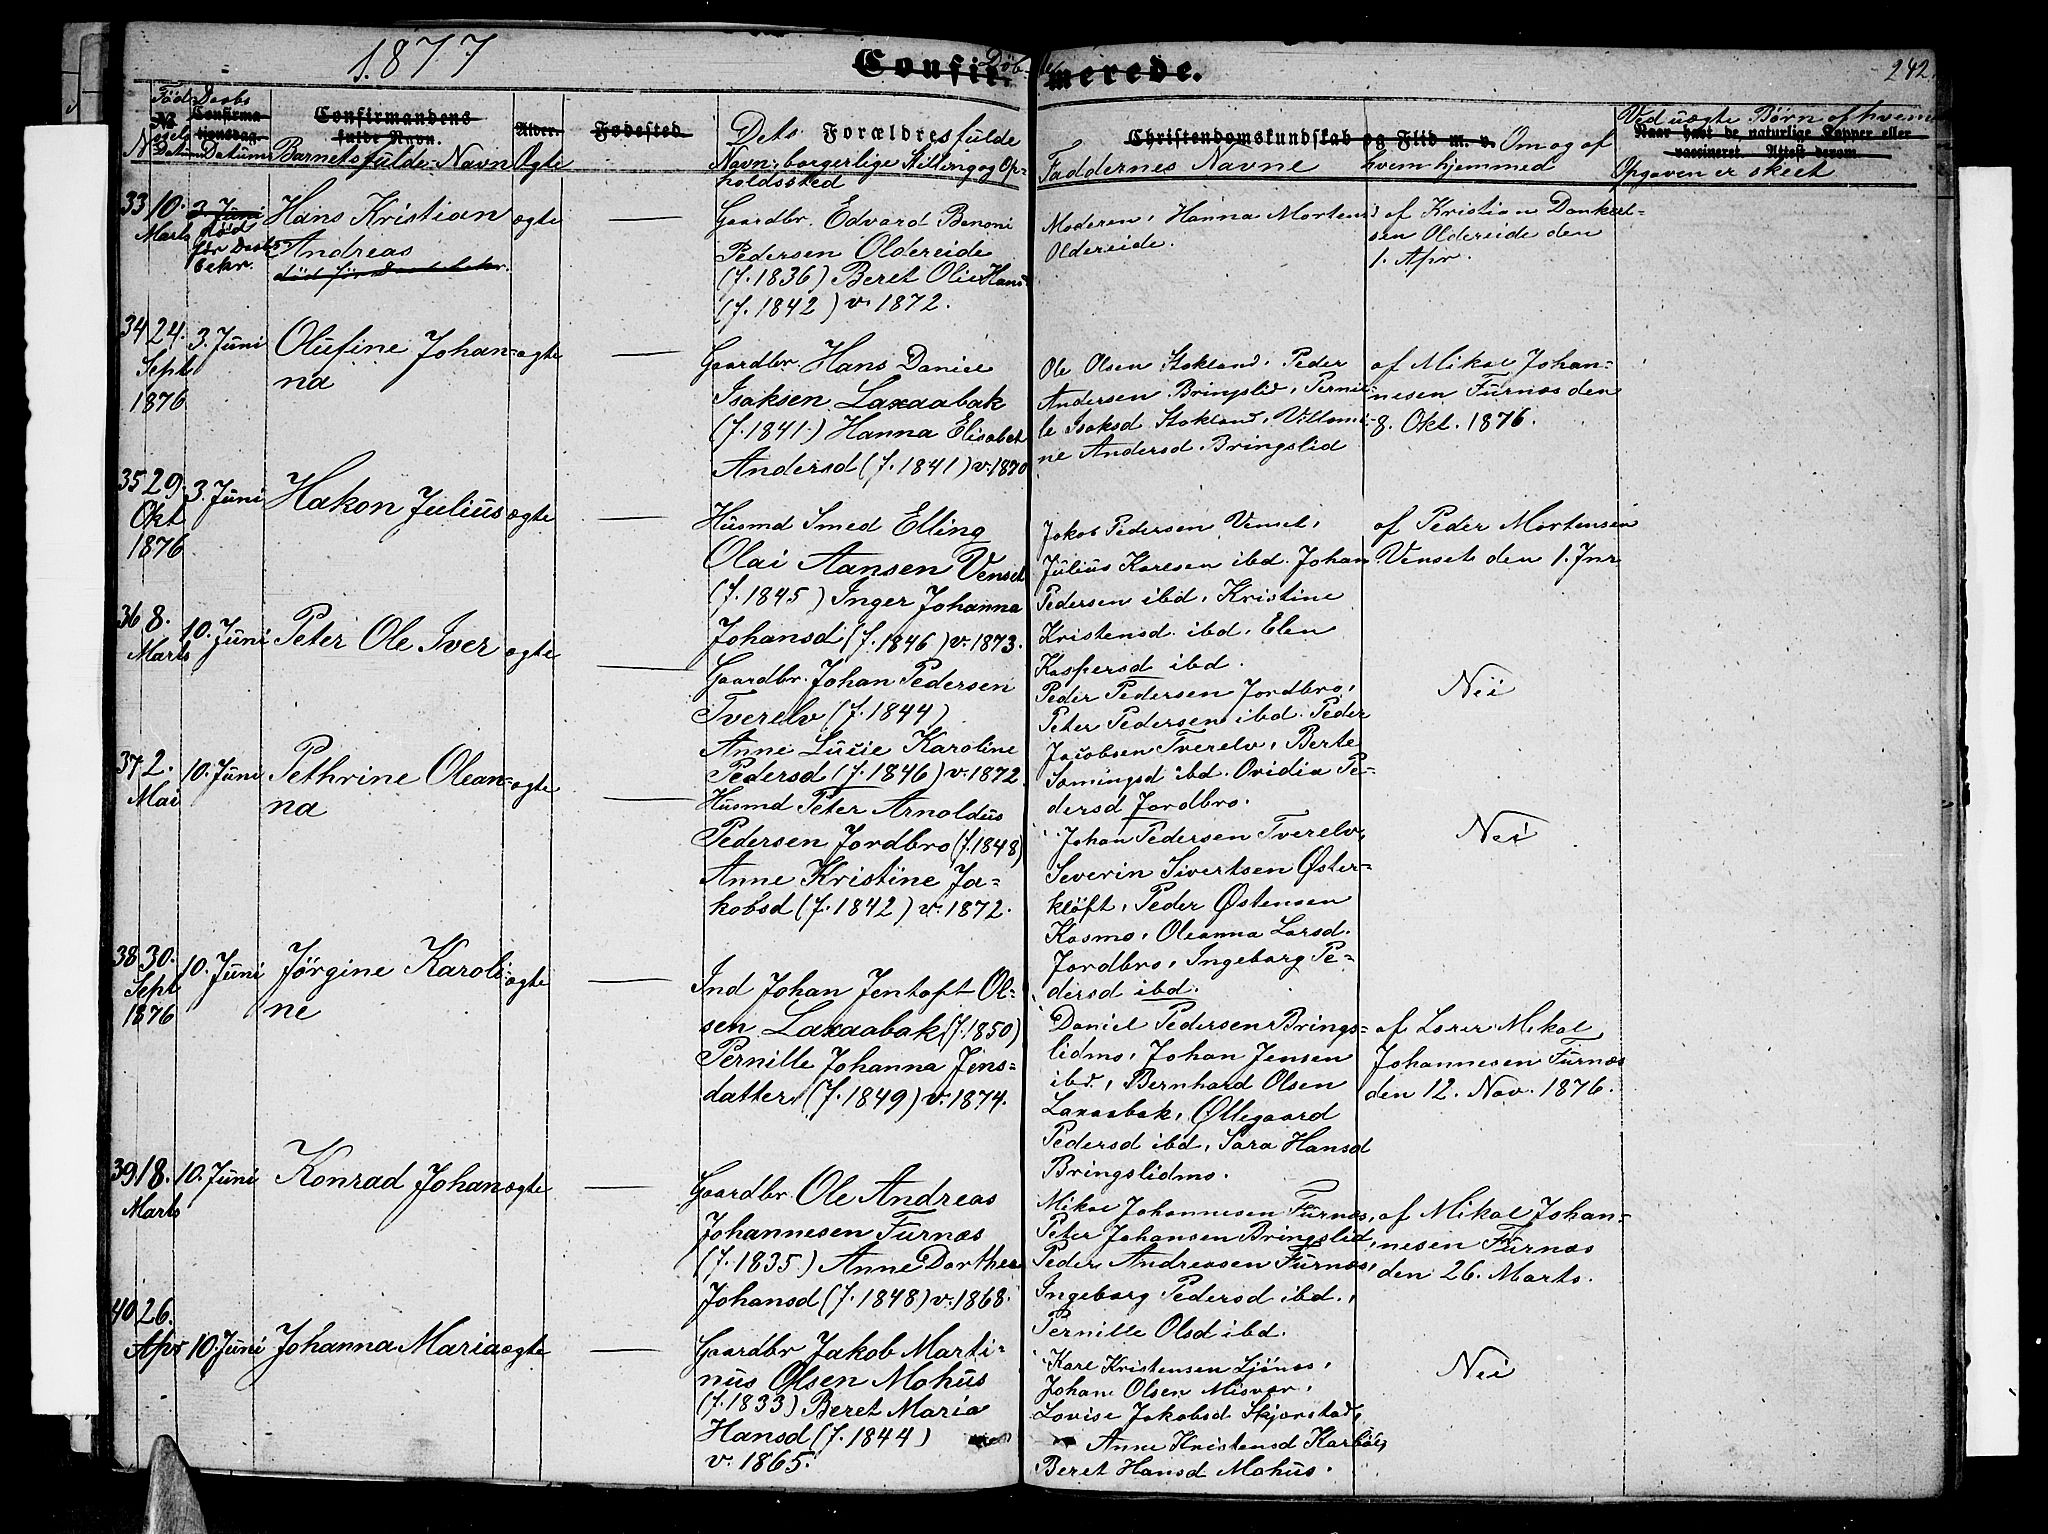 1877
Confir Döb te merede.
242.
Föd Daabs
No Confirma Confirmandens
N. selv tionsdag. fulde Navn. Alder. Fodested. Dets Forældres fulde Christendomskundskab og Flid m. v. Om og af Ved uægte Børn af hvem
Datum Datum Barnets fulde Navn Ægte Navn: borgerlige Stilling og Op- Faddernes Navne hvem hjemmed Naar havt de naturlige Kopper eller
holdssted vaccineret. Attest derom.
Opgaven er skeet
33 10. Marts
3. Juni
död
för Daabs
bekr.
Hans Kristian
Andreas
död för Daabs bekr.
ægte
Gaardbr. Edvard Benoni
Pedersen Oldereide
(f. 1836) Beret Olie Hans
(f. 1842) v. 1872.
Moderen, Hanna Mortens
Oldereide.
af Kristian Dankert-
sen Oldereide den
1. Apr.
34 24. Sept 1876
3. Juni
Olufine Johan-
na
ægte
Gaardbr. Hans Daniel
Isaksen Laxaabak
(f. 1841.) Hanna Elisabet
Andersd (f. 1841) v. 1870
Ole Olsen Stokland, Peder
Andersen Bringslid, Pernil-
le Isaksd Stokland, Villomi-
ne Andersd. Bringslid
af Mikal Johan-
nesen Furnæs den
8. Okt. 1876.
35 29. Okt 1876
3. Juni
Hakon Julius
ægte
Husmd Smed Elling
Olai Aansen Venset
(f. 1845) Inger Johanna
Johansd (f. 1846) v. 1873.
Jakob Pedersen Venset,
Julius Karlsen ibd. Johan
Pedersen ibd, Kristine
Kristensd. ibd, Elen
Kaspersd ibd.
af Peder Mortensen
Venset den 1. Jnr
36 8. Marts
10. Juni
Peter Ole Iver
ægte
Gaardbr. Johan Pedersen
Tverelv (f. 1844)
Anne Lucie Karoline
Pedersd (f. 1846) v. 1872
Peder Pedersen Jordbro,
Peter Pedersen ibd. Peder
Jacobsen Tverelv, Berte
Somingsd ibd. Ovidia Pe-
dersd Jordbro.
Nei
37 2. Mai
10. Juni
Pethrine Olean-
na
ægte
Husmd Peter Arnoldus
Pedersen Jordbro (f. 1848)
Anne Kristine Ja-
kobsd (f. 1842) v. 1872.
Johan Pedersen Tverelv,
Severin Sivertsen Øster-
klöft, Peder Østensen
Kosmo, Oleanna Larsd.
Jordbro, Ingeborg Pe-
dersd ibd.
Nei
38 30. Sept 1876
10. Juni
Jörgine Karoli-
ne
ægte
Ind Johan Jentoft Ol-
sen Laxaabak (f. 1850)
Pernille Johanna Jens-
datter (f. 1849) v. 1874.
Daniel Pedersen Brings-
lidmo, Johan Jensen
ibd., Bernhard Olsen
Laxaabak, Øllegaard
Pedersd ibd, Sara Hansd
Bringslidmo.
af Lærer Mikal
Johannesen Furnæs
den 12. Nov. 1876.
39 18. Marts
10. Juni
Konrad Johan
ægte
Gaardbr Ole Andreas
Johannesen Furnæs
(f. 1835.) Anne Dorthea
Johansd (f. 1848) v. 1868.
Mikal Johannesen Furnæs,
Peter Johansen Bringslid,
Peder Andreasen Furnæs,
Ingeborg Pedersd ibd.,
Pernille Olsd ibd.
af Mikal Johan-
nesen Furnæs
den 26. Marts.
40 26. Apr
10 Juni
Johanna Maria
ægte
Gaardbr Jakob Marti-
nus Olsen Mohus
(f. 1833) Beret Maria
Hansd (f. 1844)
v. 1865.
Kare Kristensen Ljönes,
Johan Olsen Misvær,
Lovise Jakobsd Skjærstad,
Anne Kristensd Karböl,
Beret Hansd Mohus.
Nei